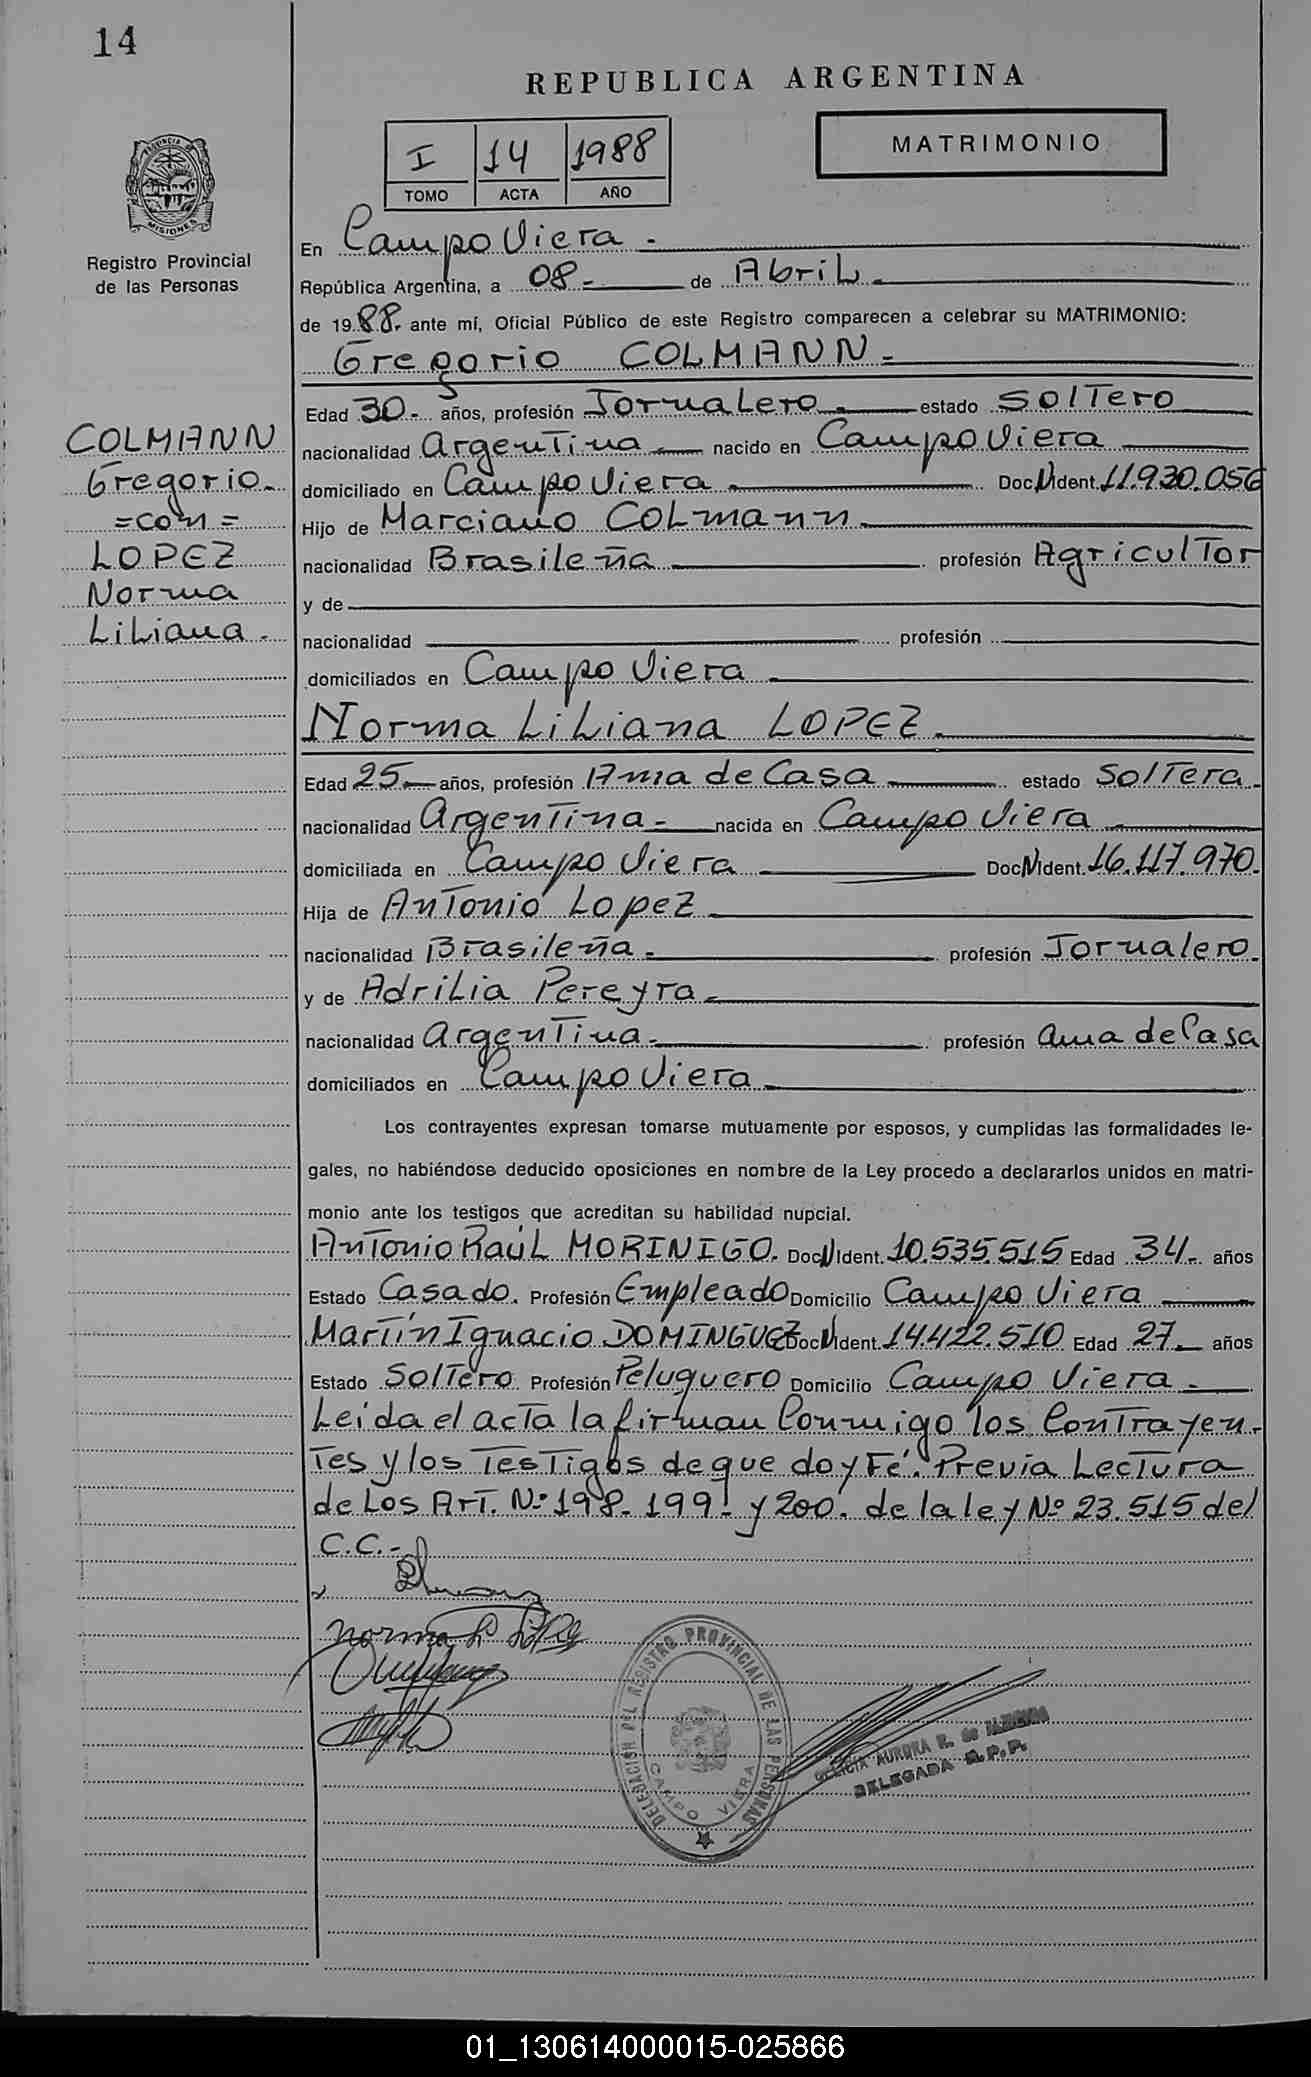 14
REPUBLICA ARGENTINA
MATRIMONIO
I 14 1988
TOMO ACTA AÑO
PROVINCIA DE
MISIONES
Registro Provincial
de las Personas
En Campo Viera.
República Argentina, a 08.- de Abril.
de 1988. ante mí, Oficial Público de este Registro comparecen a celebrar su MATRIMONIO:
Gregorio COLMANN.
Edad 30.- años, profesión Jornalero.- estado Soltero
nacionalidad Argentina nacido en Campo Viera
domiciliado en Campo Viera. Doc N Ident. 11.930.056
Hijo de Marciano COLmann.
nacionalidad Brasileña profesión Agricultor
y de
nacionalidad profesión
domiciliados en Campo Viera
COLMANN
Gregorio.
=con=
LOPEZ
Norma
Liliana.
Norma Liliana LOPEZ.
Edad 25.- años, profesión Ama de Casa estado Soltera.
nacionalidad Argentina.- nacida en Campo Viera.
domiciliada en Campo Viera Doc N Ident. 16.117.970.
Hija de Antonio Lopez.
nacionalidad Brasileña. profesión Jornalero.
y de Adrilia Pereyra.
nacionalidad Argentina. profesión Ama de Casa
domiciliados en Campo Viera.
Los contrayentes expresan tomarse mutuamente por esposos, y cumplidas las formalidades le-
gales, no habiéndose deducido oposiciones en nombre de la Ley procedo a declararlos unidos en matri-
monio ante los testigos que acreditan su habilidad nupcial.
Antonio Raúl MORINIGO. Doc N Ident. 10.535.515 Edad 34.- años
Estado Casado. Profesión Empleado Domicilio Campo Viera
Martín Ignacio DOMINGUEZ Doc N Ident. 14.422.510 Edad 27.- años
Estado Soltero. Profesión Peluquero Domicilio Campo Viera.-
Leida el acta la firman Conmigo los Contrayen-
tes y los Testigos de que doy Fé. Previa Lectura
de Los Art. Nº 198. 199. y 200. de la ley Nº 23.515 del
C.C.-
Norma L. López
DELEGACION DEL REGISTRO PROVINCIAL DE LAS PERSONAS
CAMPO VIERA
AURORA R. de
DELEGADA R.P.P.
01_130614000015-025866